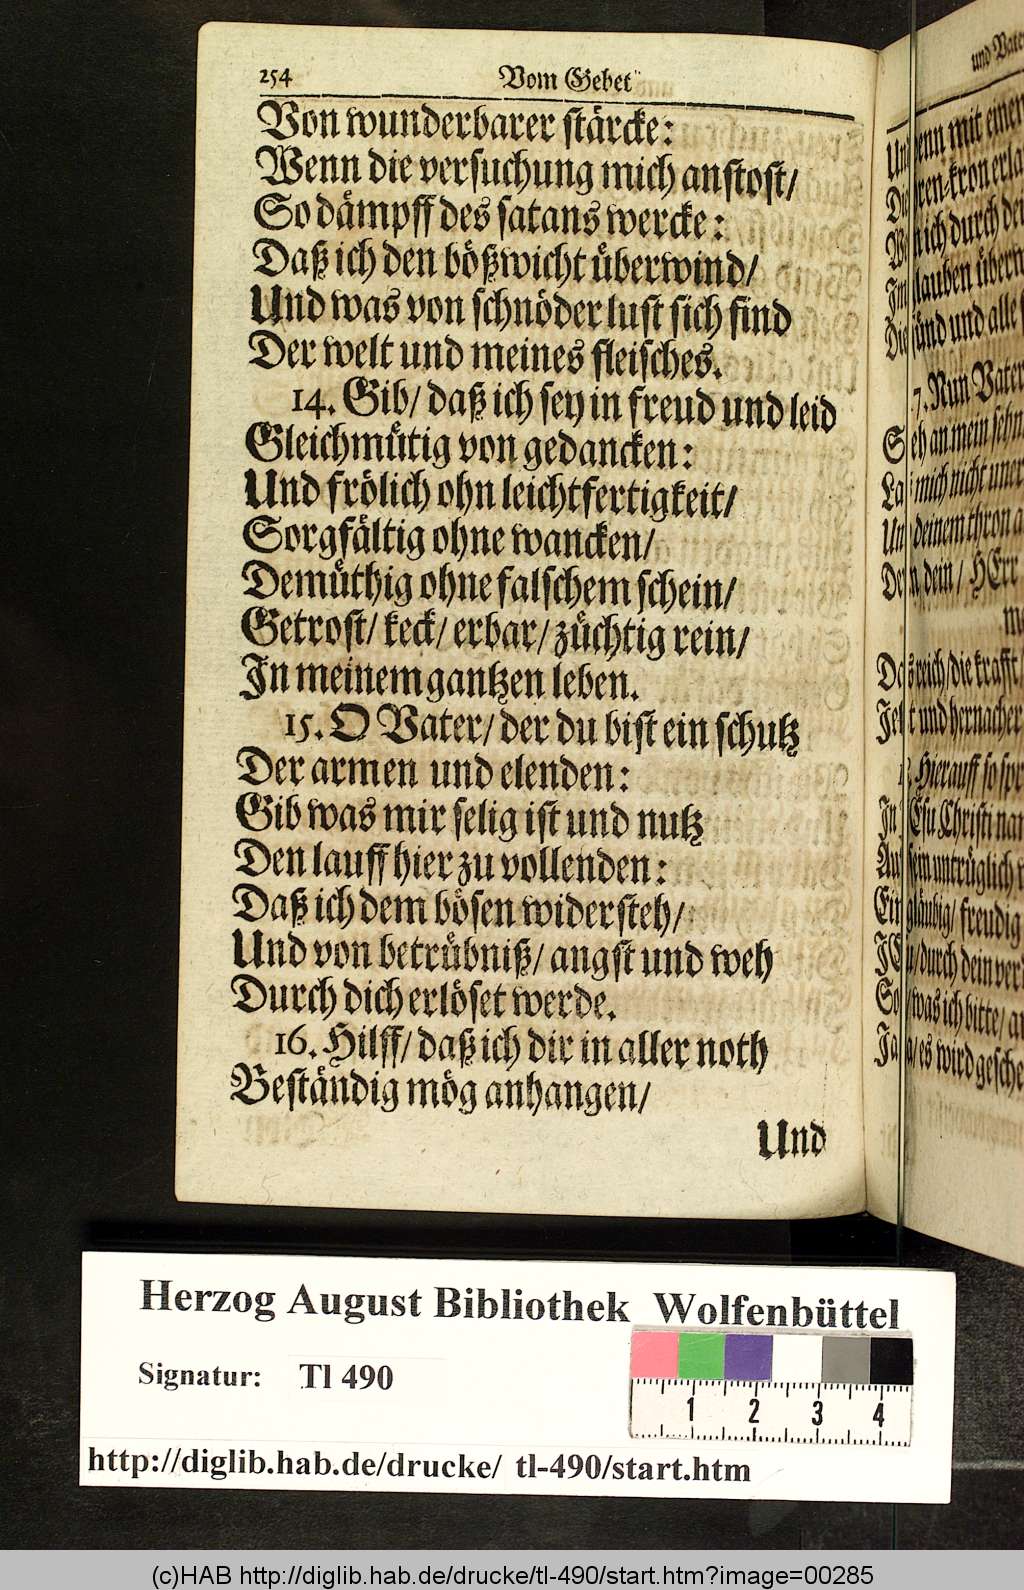 254 Vom Gebet
Von wunderbarer stärcke:
Wenn die versuchung mich anstost/
So dämpff des satans wercke:
Daß ich den bößwicht überwind/
Und was von schnöder lust sich find
Der welt und meines fleisches.
14. Gib/ daß ich sey in freud und leid
Gleichmütig von gedancken:
Und frölich ohn leichtfertigkeit/
Sorgfältig ohne wancken/
Demüthig ohne falschem schein/
Getrost/ keck/ erbar/ züchtig rein/
In meinem gantzen leben.
15. O Vater/ der du bist ein schutz
Der armen und elenden:
Gib was mir selig ist und nutz
Den lauff hier zu vollenden:
Daß ich dem bösen widersteh/
Und von betrübniß/ angst und weh
Durch dich erlöset werde.
16. Hilff/ daß ich dir in aller noth
Beständig mög anhangen/
Und
und Vater
mit einer
ich durch
und alle
7. Nun Vater
an mein
mich nicht
deinem thron
dein/ HErr
reich/ die krafft/
und hernacher
Hierauff so
Christi
untrüglich
gläubig/ freudig
durch dein
was ich bitte/
es wird
Herzog August Bibliothek Wolfenbüttel
Signatur: Tl 490
1 2 3 4
http://diglib.hab.de/drucke/ tl-490/start.htm
(c)HAB http://diglib.hab.de/drucke/tl-490/start.htm?image=00285